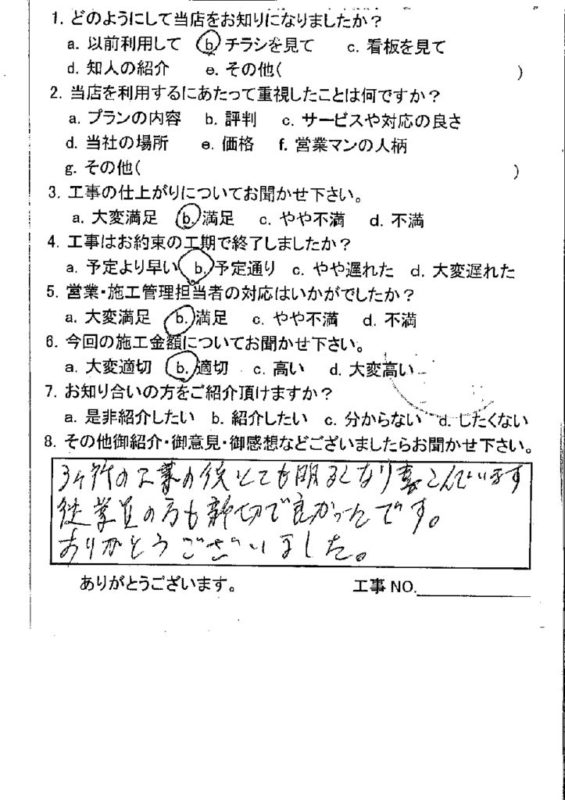 1. どのようにして当店をお知りになりましたか？
a. 以前利用して b. チラシを見て c. 看板を見て
d. 知人の紹介 e. その他( )
2. 当店を利用するにあたって重視したことは何ですか？
a. プランの内容 b. 評判 c. サービスや対応の良さ
d. 当社の場所 e. 価格 f. 営業マンの人柄
g. その他( )
3. 工事の仕上がりについてお聞かせ下さい。
a. 大変満足 b. 満足 c. やや不満 d. 不満
4. 工事はお約束の工期で終了しましたか？
a. 予定より早い b. 予定通り c. やや遅れた d. 大変遅れた
5. 営業・施工管理担当者の対応はいかがでしたか？
a. 大変満足 b. 満足 c. やや不満 d. 不満
6. 今回の施工金額についてお聞かせ下さい。
a. 大変適切 b. 適切 c. 高い d. 大変高い
7. お知り合いの方をご紹介頂けますか？
a. 是非紹介したい b. 紹介したい c. 分からない d. したくない
8. その他御紹介・御意見・御感想などございましたらお聞かせ下さい。
3ヶ所の工事の後とても明るくなり喜こんでいます
従業員の方も親切で良かったです。
ありがとうございました。
ありがとうございます。 工事 NO.